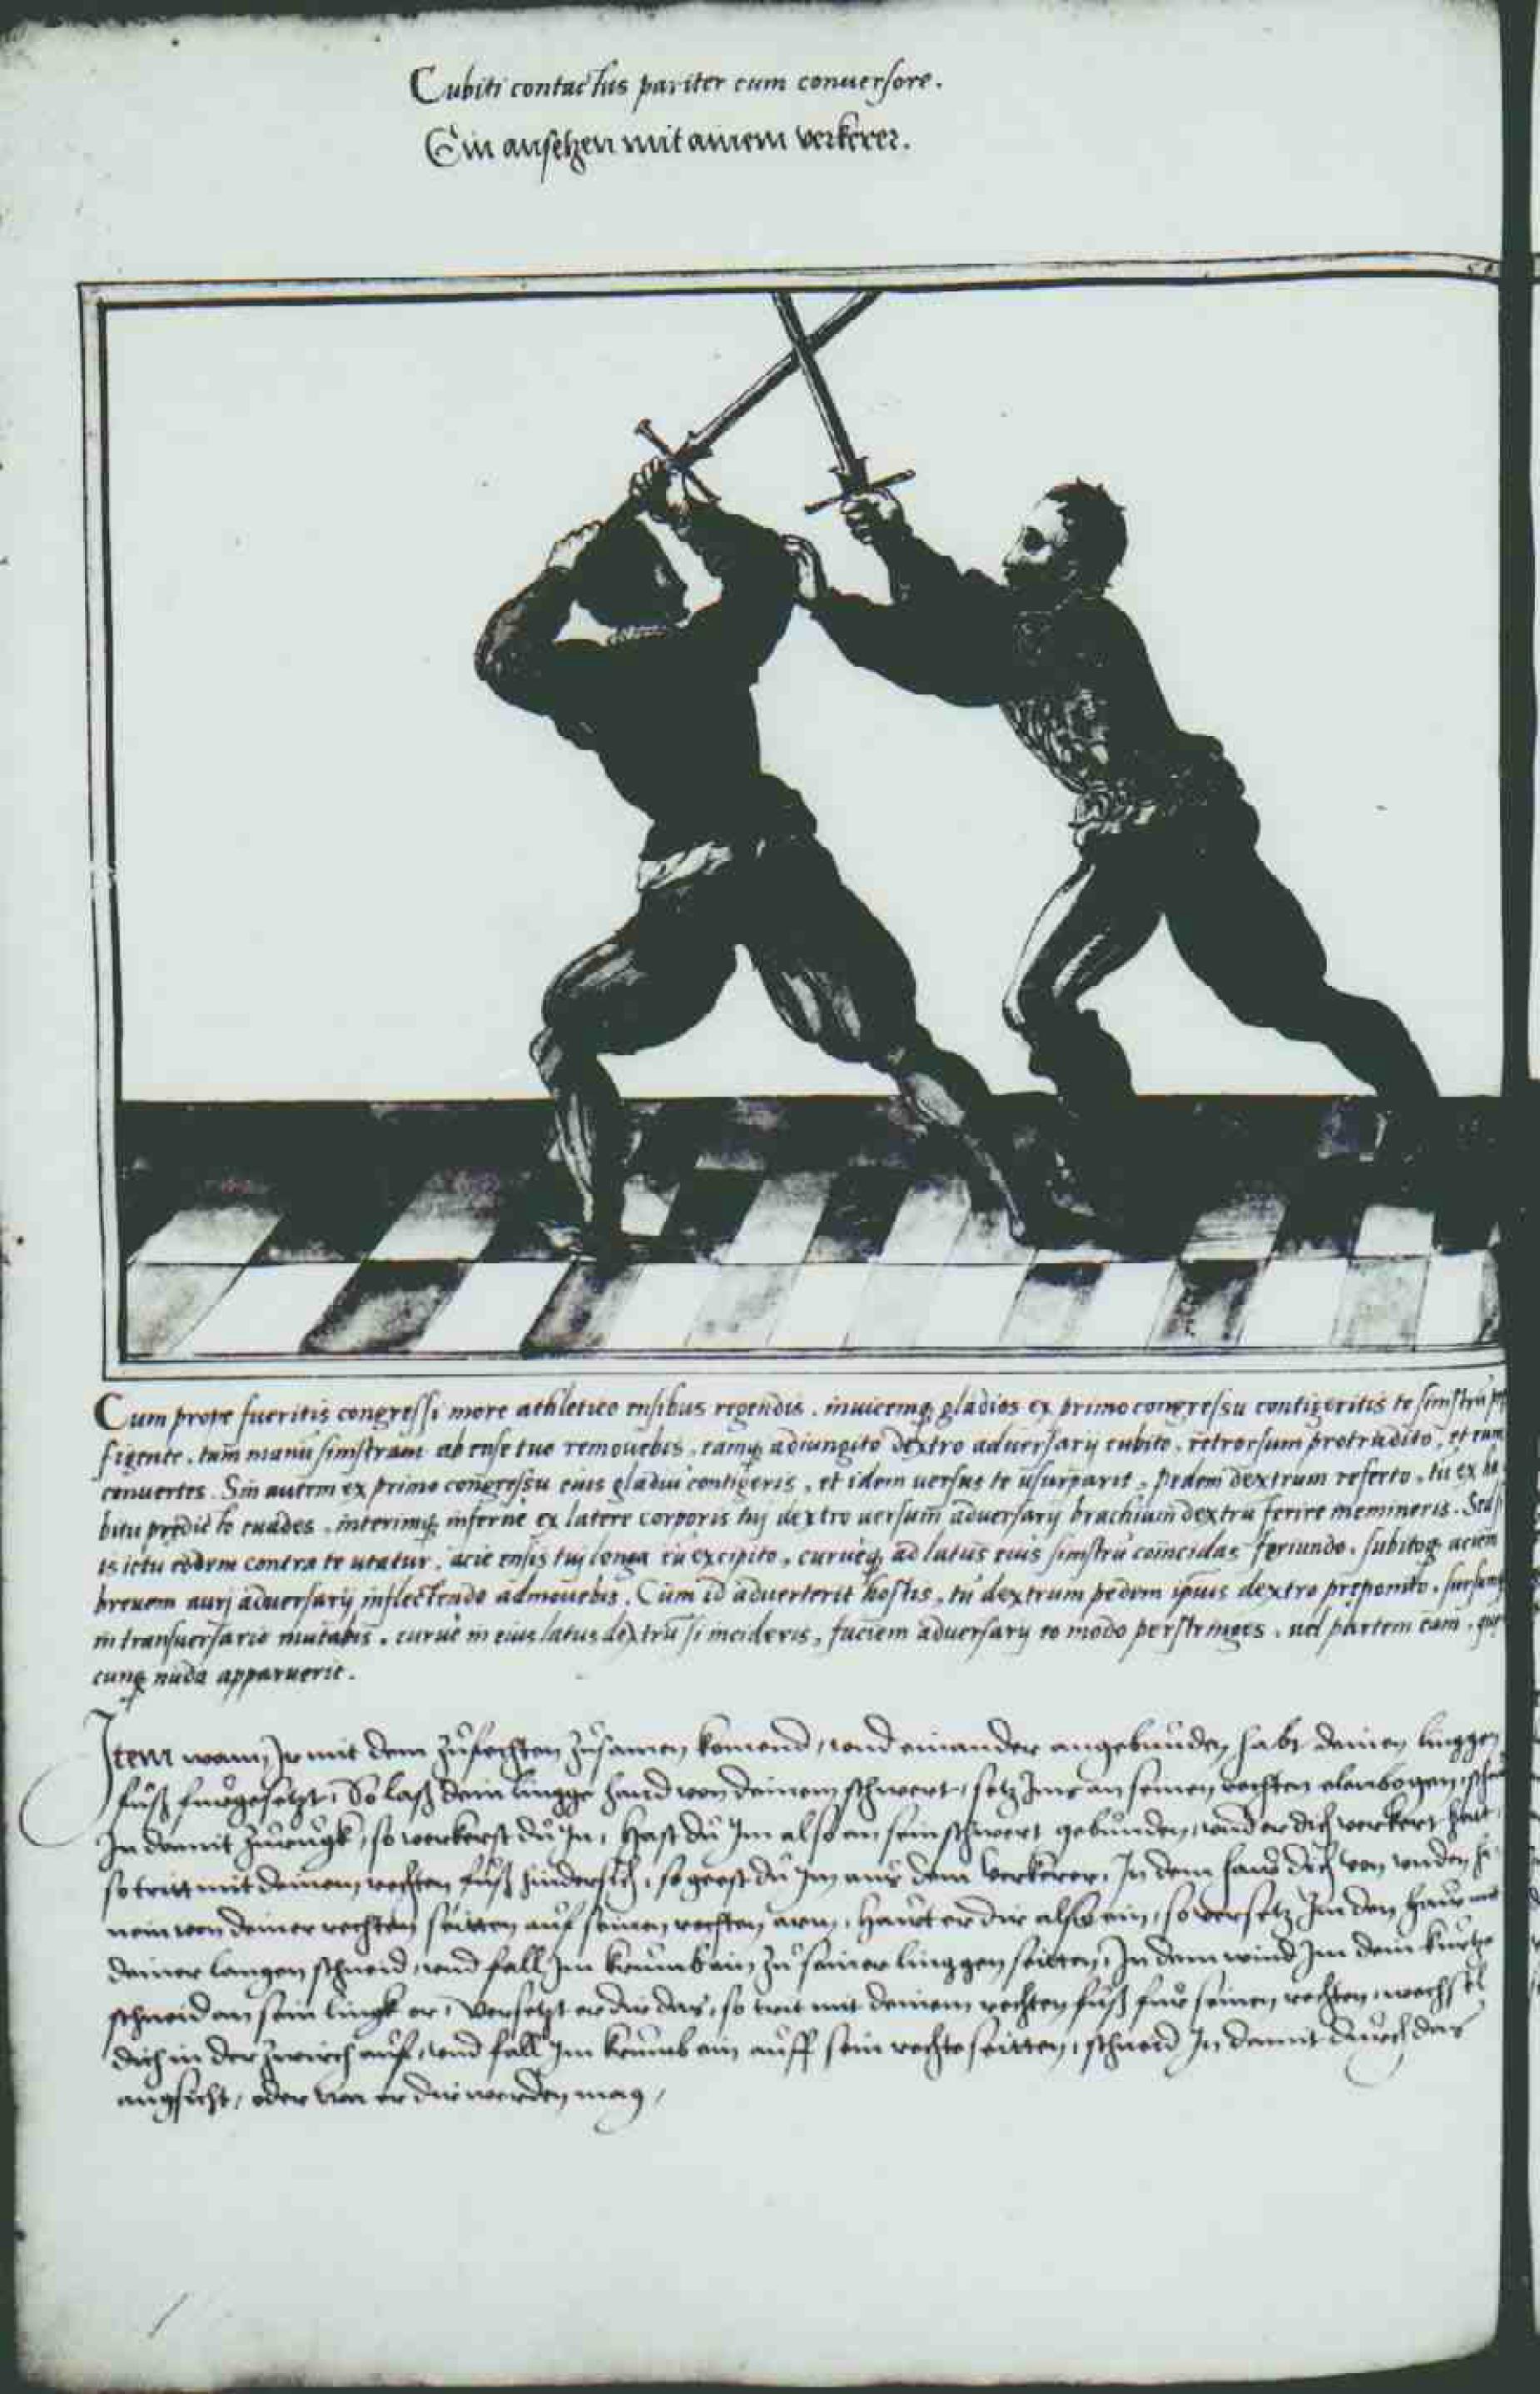 Cubiti contactus pariter cum conuersore.
Ein ansetzen mit ainem verkerer.
Cum prope fueritis congressi more athletico ensibus regendis, inuicemq; gladios ex primo congressu contigeritis te sinistrū
figente, tum manū sinistram ab ense tuo remouebis, eamq; adiungito dextro aduersarij cubito, retrorsum protrudito, et eum
conuertes. Sin autem ex primo congressu eius gladiū contigeris, et idem uersus te usurparit, pedem dextrum referto, tu ex ha
bitu predicto euades, interimq; inferne ex latere corporis tuj dextro uersum aduersarij brachium dextrū ferire memineris. Sed si
is ictu eodem contra te utatur, acie ensis tuj longa eū excipito, curueq; ad latus eius sinistrū coincidas feriundo, subitoq; aciem
breuem aurj aduersarij inflectendo admouebis. Cum id aduerterit hostis, tu dextrum pedem ipsius dextro preponito, sursumq;
in transuersario mutabis, curue in eius latus dextrū si incideris, faciem aduersarij eo modo perstringes, uel partem eam, que
cunq; nuda apparuerit.
Item wann Jr mit dem zůfechten zůsamen komend, vnd einander angebunden habt deinen linggen
fůß fürgesetzt, So laß dein lingge hand von deinem schwert, setz Jme an seinen rechten elenbogen,
In damit zurugk, so verkerst du In, Hast du Jm also an sein schwert gebunden, vnd er dich verkert hat
so trit mit deinem rechten fůß hindersich, so geest du Jm aus dem verkerer, In dem haw dich von vnden hi
nein von deiner rechten seitten auf seinen rechten arm, Hawt er dir also ein, so versetz Jm den haw mit
deiner langen schneid, vnd fall Jm krumb ein zů seiner linggen seitten, In dem wind Jm dein kurtze
schneid an sein lingk or, Versetzt er dir das, so trit mit deinem rechten fůß für seinen rechten, wechsel
dich in der zwirch auf, vnd fall Jm krumb ein auff sein rechte seitten, schneid In damit durch das
angsicht, oder wa er dir werden mag,